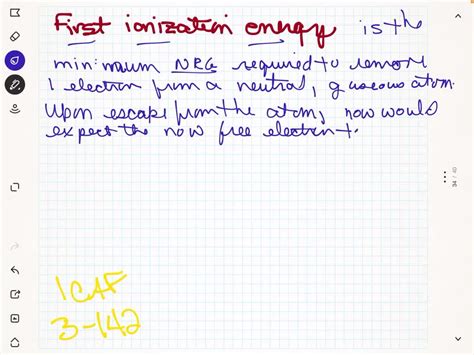 First ionization energy is the
minimum NRG required to remove
1 electron from a neutral, gaseous atom.
Upon escape from the atom, how would
expect the now free electron t.
1CAF
3-142